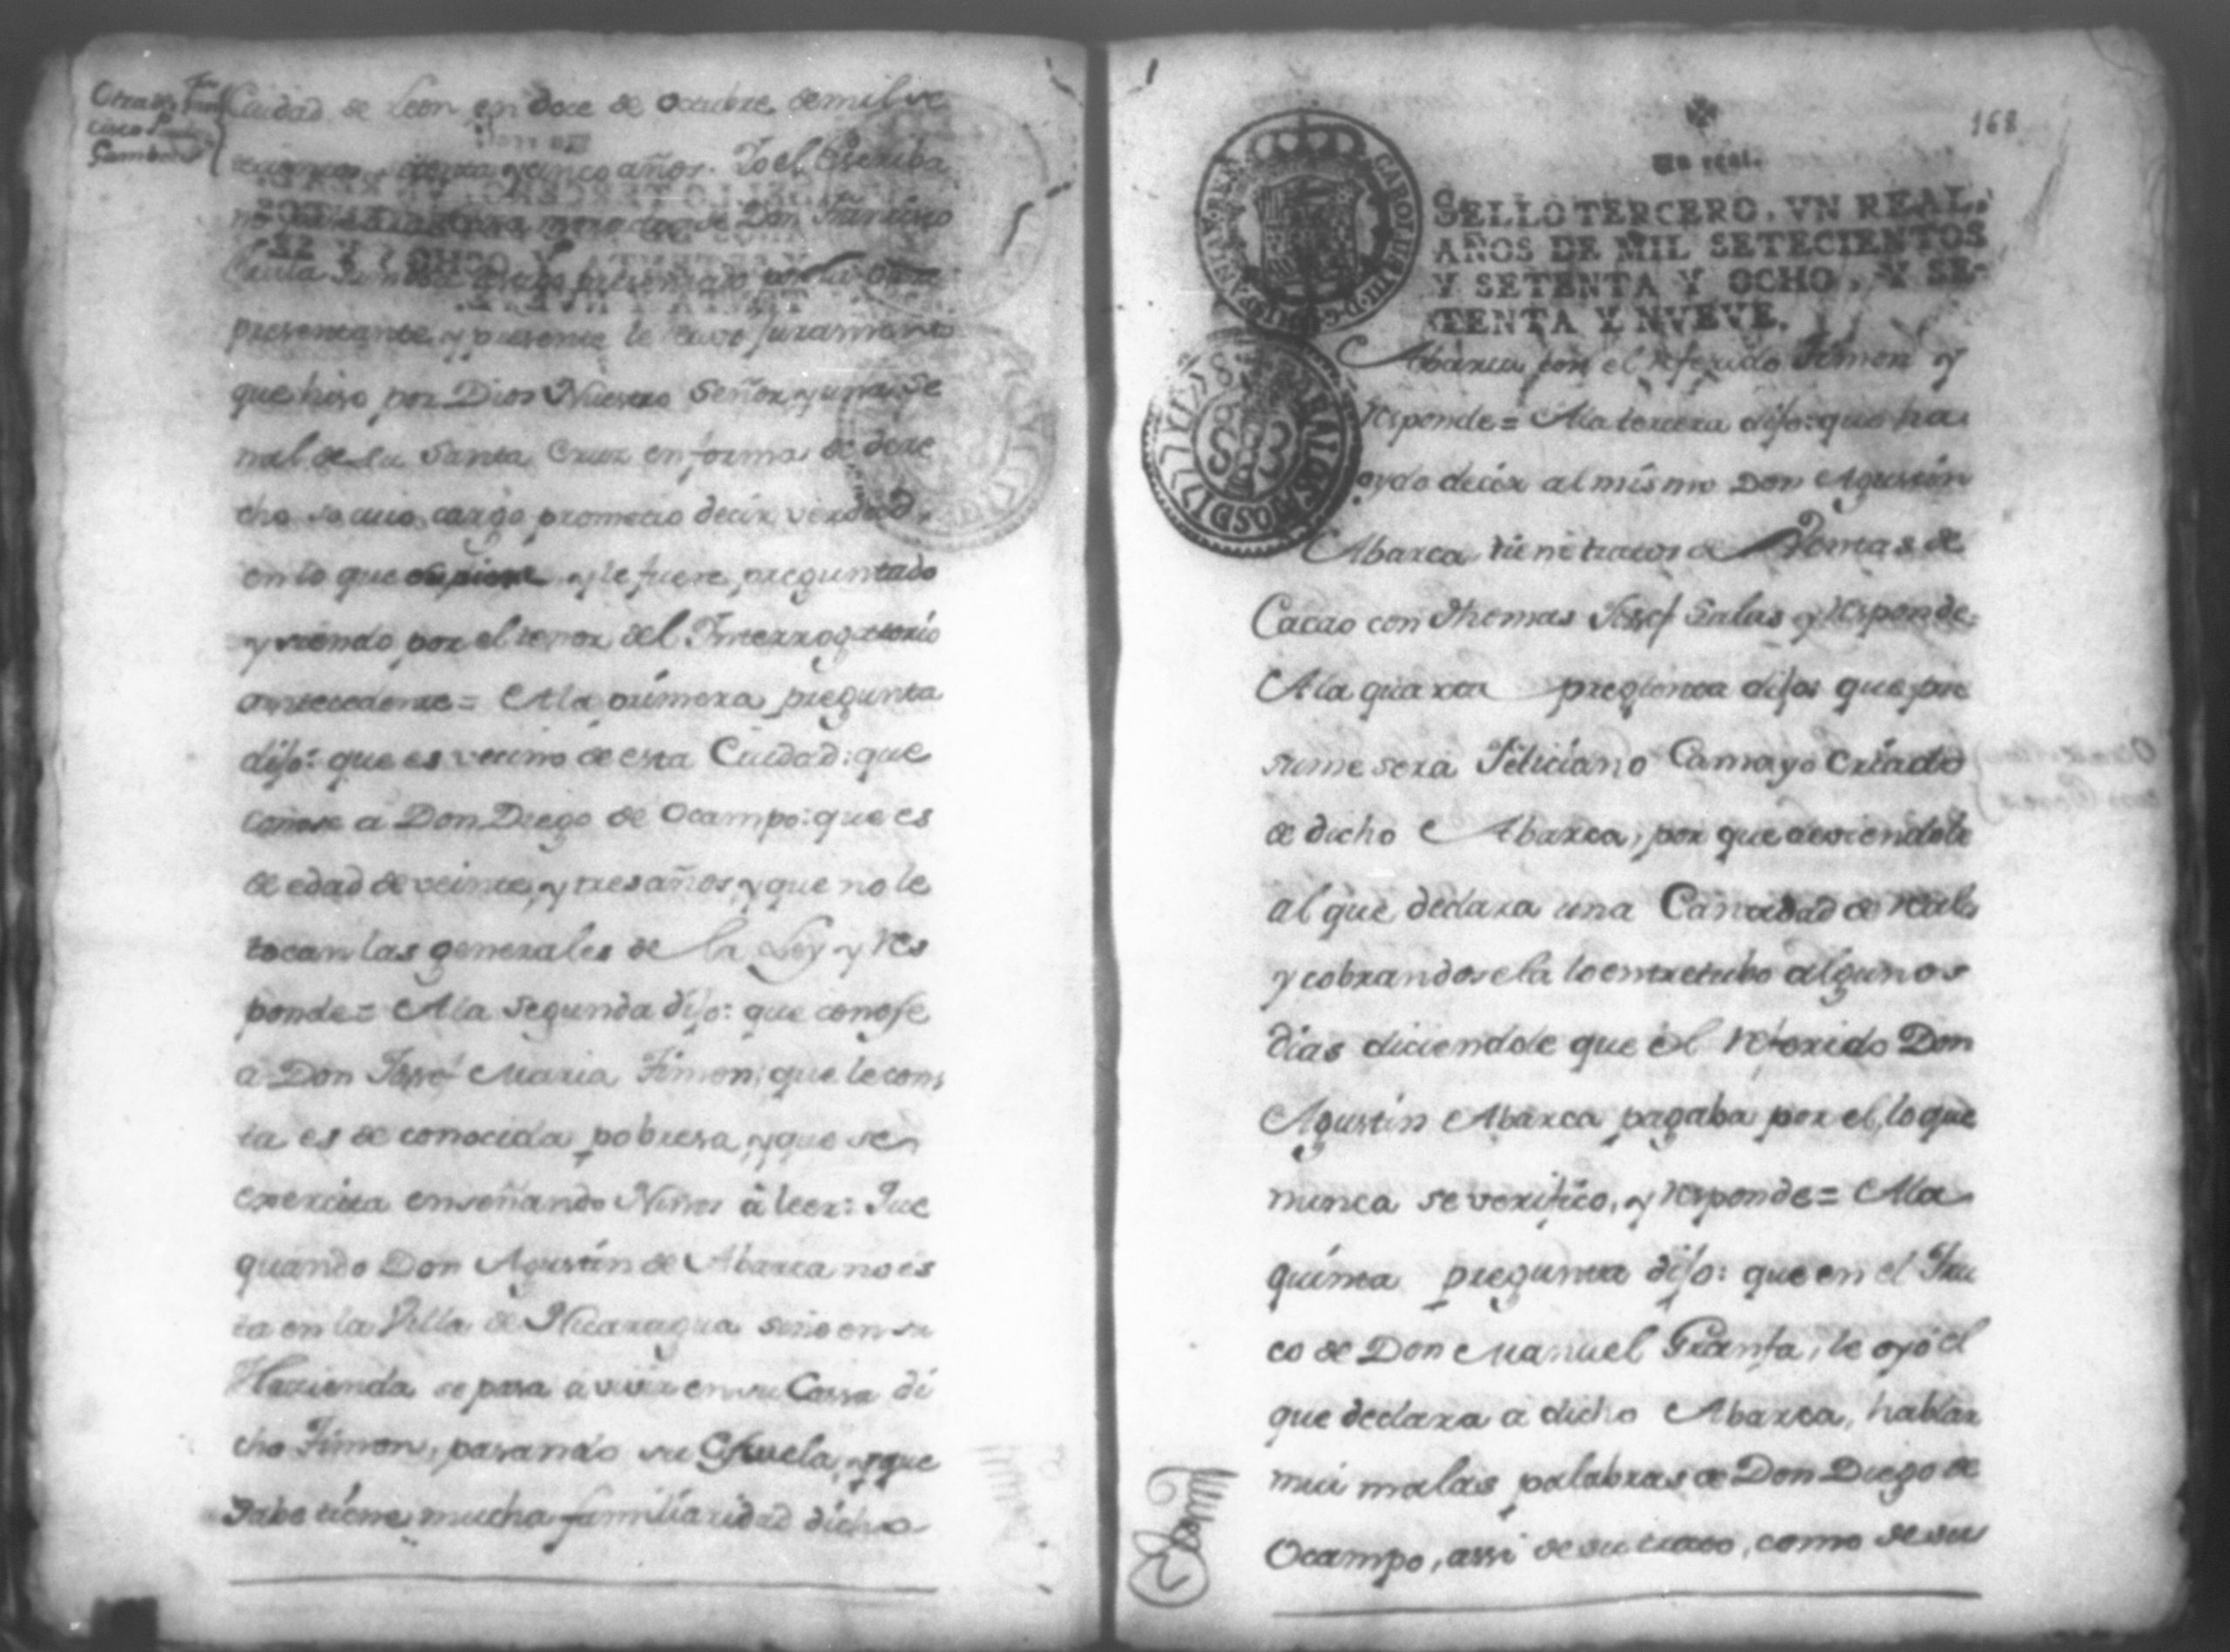 Otra de Fran
cisco Paula
Gamboa
Ciudad de Leon en doce de Octubre de mil se
tecientos setenta y cinco años. Yo el Escriba
no Don Francisco
Paula
presentante, y presente le resivi juramento
que hiso por Dios Nuestro Señor, y una Se
ñal de su Santa Cruz en forma de dere
cho so cuio cargo prometio decir verdad,
en lo que supiere y le fuere preguntado
y siendo por el tenor del Interrogatorio
antecedente = A la primera pregunta
dijo: que es vecino de esta Ciudad: que
conose a Don Diego de Ocampo: que es
de edad de veinte, y tres años, y que no le
tocan las generales de la Ley y res
ponde = A la segunda dijo: que conose
a Don Josef Maria Simon, que le cons
ta es de conocida pobresa, y que se
exercita enseñando Niños â leer: Que
quando Don Agustin de Abarca no es
ta en la Villa de Nicaragua sino en su
Hacienda se pasa a vivir en su Cassa di
cho Simon, pasando su Escuela, y que
Sabe tiene mucha familiaridad dicho
168
Un real.
SELLO TERCERO, VN REAL,
AÑOS DE MIL SETECIENTOS
Y SETENTA Y OCHO, Y SE-
TENTA Y NVEVE.
Abarca con el referido Simon y
responde = A la tercera dijo: que ha
oydo decir al mismo Don Agustin
Abarca, tiene tratos de Ventas de
Cacao con Thomas Josef Salas y responde =
A la quarta pregunta dijo: que pre
sume sera Feliciano Camayo Criado
de dicho Abarca, por que deviendole
al que declara una Cantidad de reales
y cobrandosela lo entretubo algunos
dias diciendole que el referido Don
Agustin Abarca pagaba por el, lo que
nunca se verifico, y responde = A la
quinta pregunta dijo: que en el Tru
co de Don Manuel Granja, le oyo el
que declara a dicho Abarca, hablar
mui malas palabras de Don Diego de
Ocampo, assi de su trato, como de su